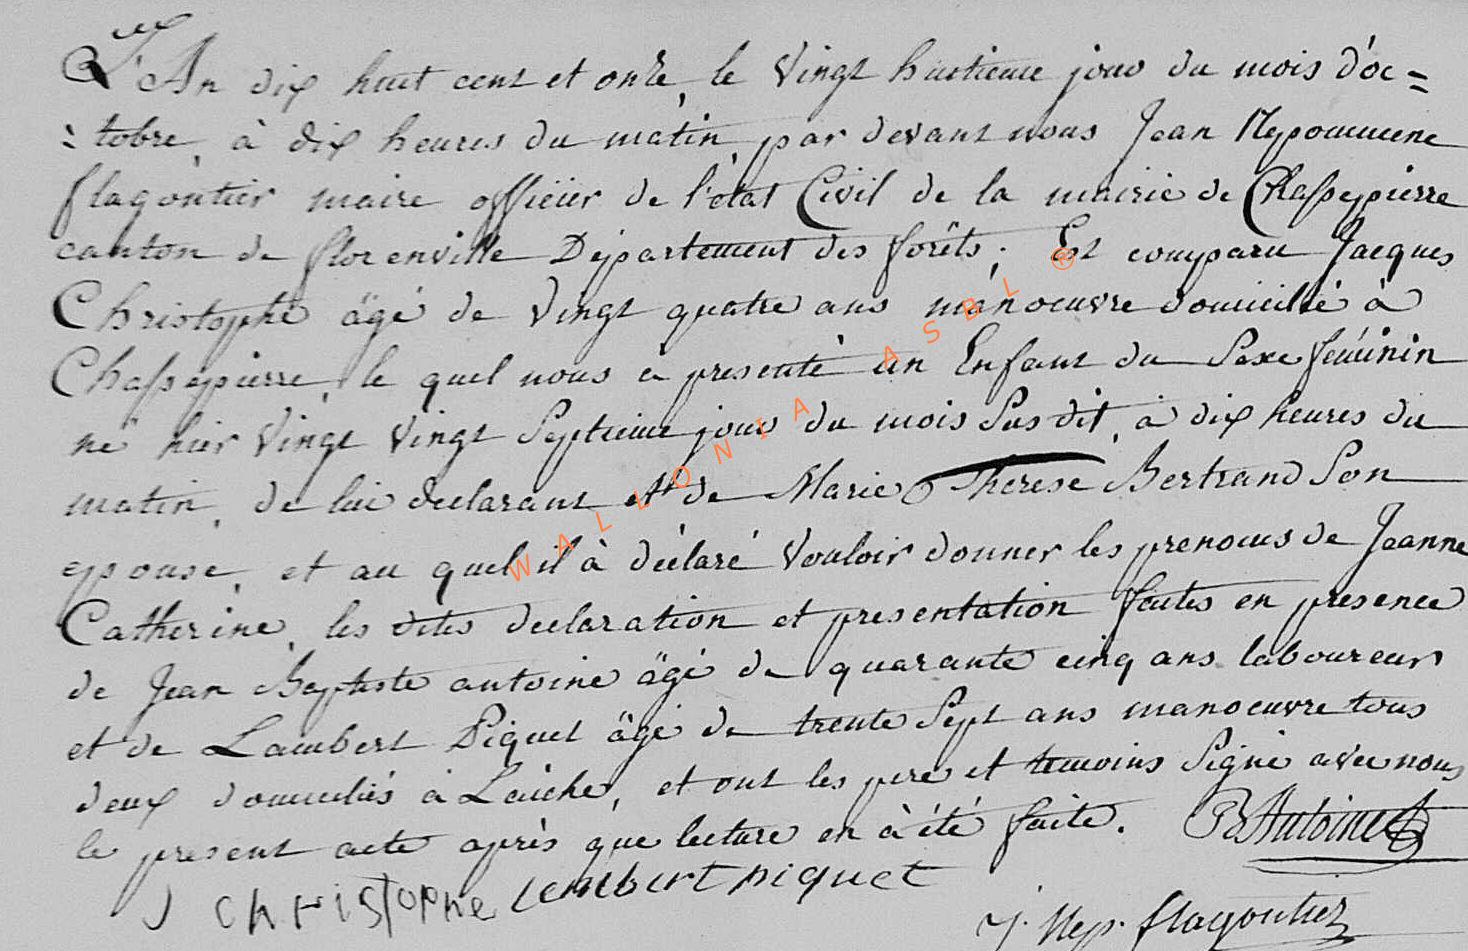 L'An dix huit cent et onze, le vingt huitieme jour du mois d'oc=
=tobre, à dix heures du matin, par devant nous Jean Nepomucene
flagontier maire officier de l'état Civil de la mairie de Chassepierre
canton de florenville Département des forêts; Est comparu Jacques
Christophe âgé de vingt quatre ans manoeuvre domicilié à
Chassepierre, le quel nous a presenté un Enfant du Sexe féminin
né hier vingt vingt Septieme jour du mois Sus dit, à dix heures du
matin, de lui declarant et de Marie Therese Bertrand Son
epouse, et au quel il à déclaré vouloir donner les prenoms de Jeanne
Catherine, les dites declaration et presentation faites en presence
de Jean Baptiste antoine âgé de quarante cinq ans laboureur
et de Lambert Piquet âgé de trente Sept ans manoeuvre tous
deux domiciliés à Laiche, et ont les pere et temoins Signé avec nous
le present acte après que lecture en à été faite. B Antoine
J CHristoPHe Lembert piquet
J. Nep. flagontier
WALLONIA ASBL ®